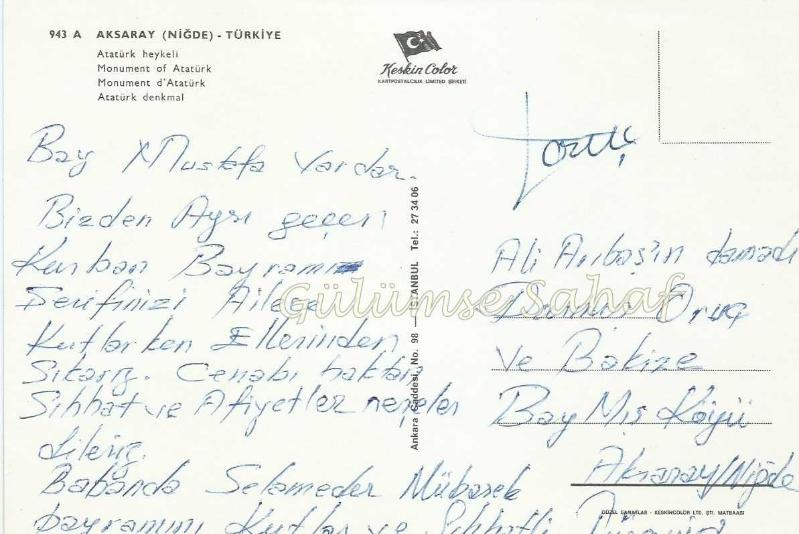 943 A AKSARAY (NİĞDE) - TÜRKİYE
Atatürk heykeli
Monument of Atatürk
Monument d'Atatürk
Atatürk denkmal
Keskin Color
KARTPOSTALCILIK LİMİTED ŞİRKETİ
Bay Mustafa Vardar.
Bizden Ayrı geçen
Kurban Bayramı
Şerifinizi Ailece
Kutlarken Ellerinden
Sıkarız. Cenabı haktan
Sıhhat ve Afiyetler neşeler
dileriz.
Babanda Selameder Mübarek
bayramını Kutlar ve Sıhhatli
Ankara Caddesi, No. 98 — İSTANBUL Tel.: 27 34 06
Ali Arıbaş'ın damadı
Oruç
ve Bakize
Bay Mış Köyü
Aksaray/Niğde
GÜZEL SANATLAR - KESKİNCOLOR LTD. ŞTİ. MATBAASI
Gülümse Sahaf